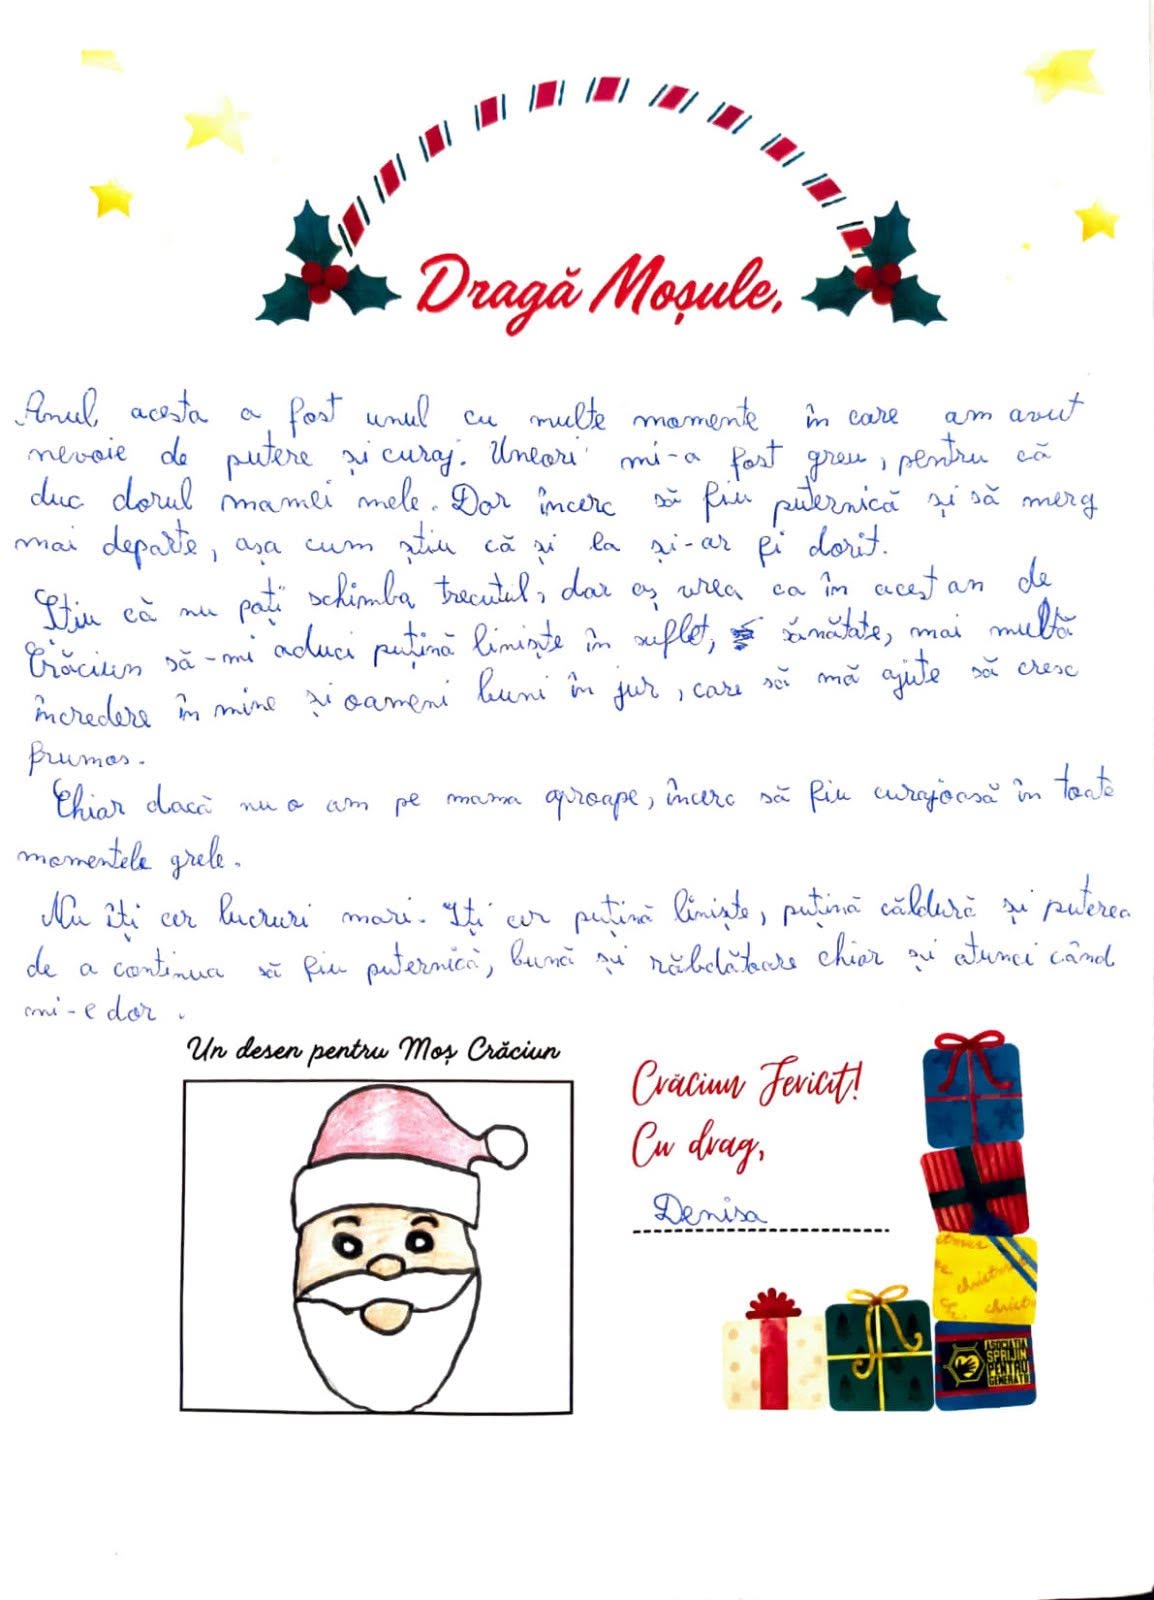 Dragă Moșule,
Anul acesta a fost unul cu multe momente în care am avut
nevoie de putere și curaj. Uneori mi-a fost greu, pentru că
duc dorul mamei mele. Dar încerc să fiu puternică și să merg
mai departe, așa cum știu că și ea și-ar fi dorit.
Știu că nu poți schimba trecutul, dar aș vrea ca în acest an de
Crăciun să-mi aduci puțină liniște în suflet, sănătate, mai multă
încredere în mine și oameni buni în jur, care să mă ajute să cresc
frumos.
Chiar dacă nu o am pe mama aproape, încerc să fiu curajoasă în toate
momentele grele.
Nu îți cer lucruri mari. Iți cer puțină liniște, puțină căldură și puterea
de a continua să fiu puternică, bună și răbdătoare chiar și atunci când
mi-e dor.
Un desen pentru Moș Crăciun
Crăciun Fericit!
Cu drag,
Denisa
christmas
christ
ASOCIAȚIA
SPRIJIN
PENTRU
GENERAȚII